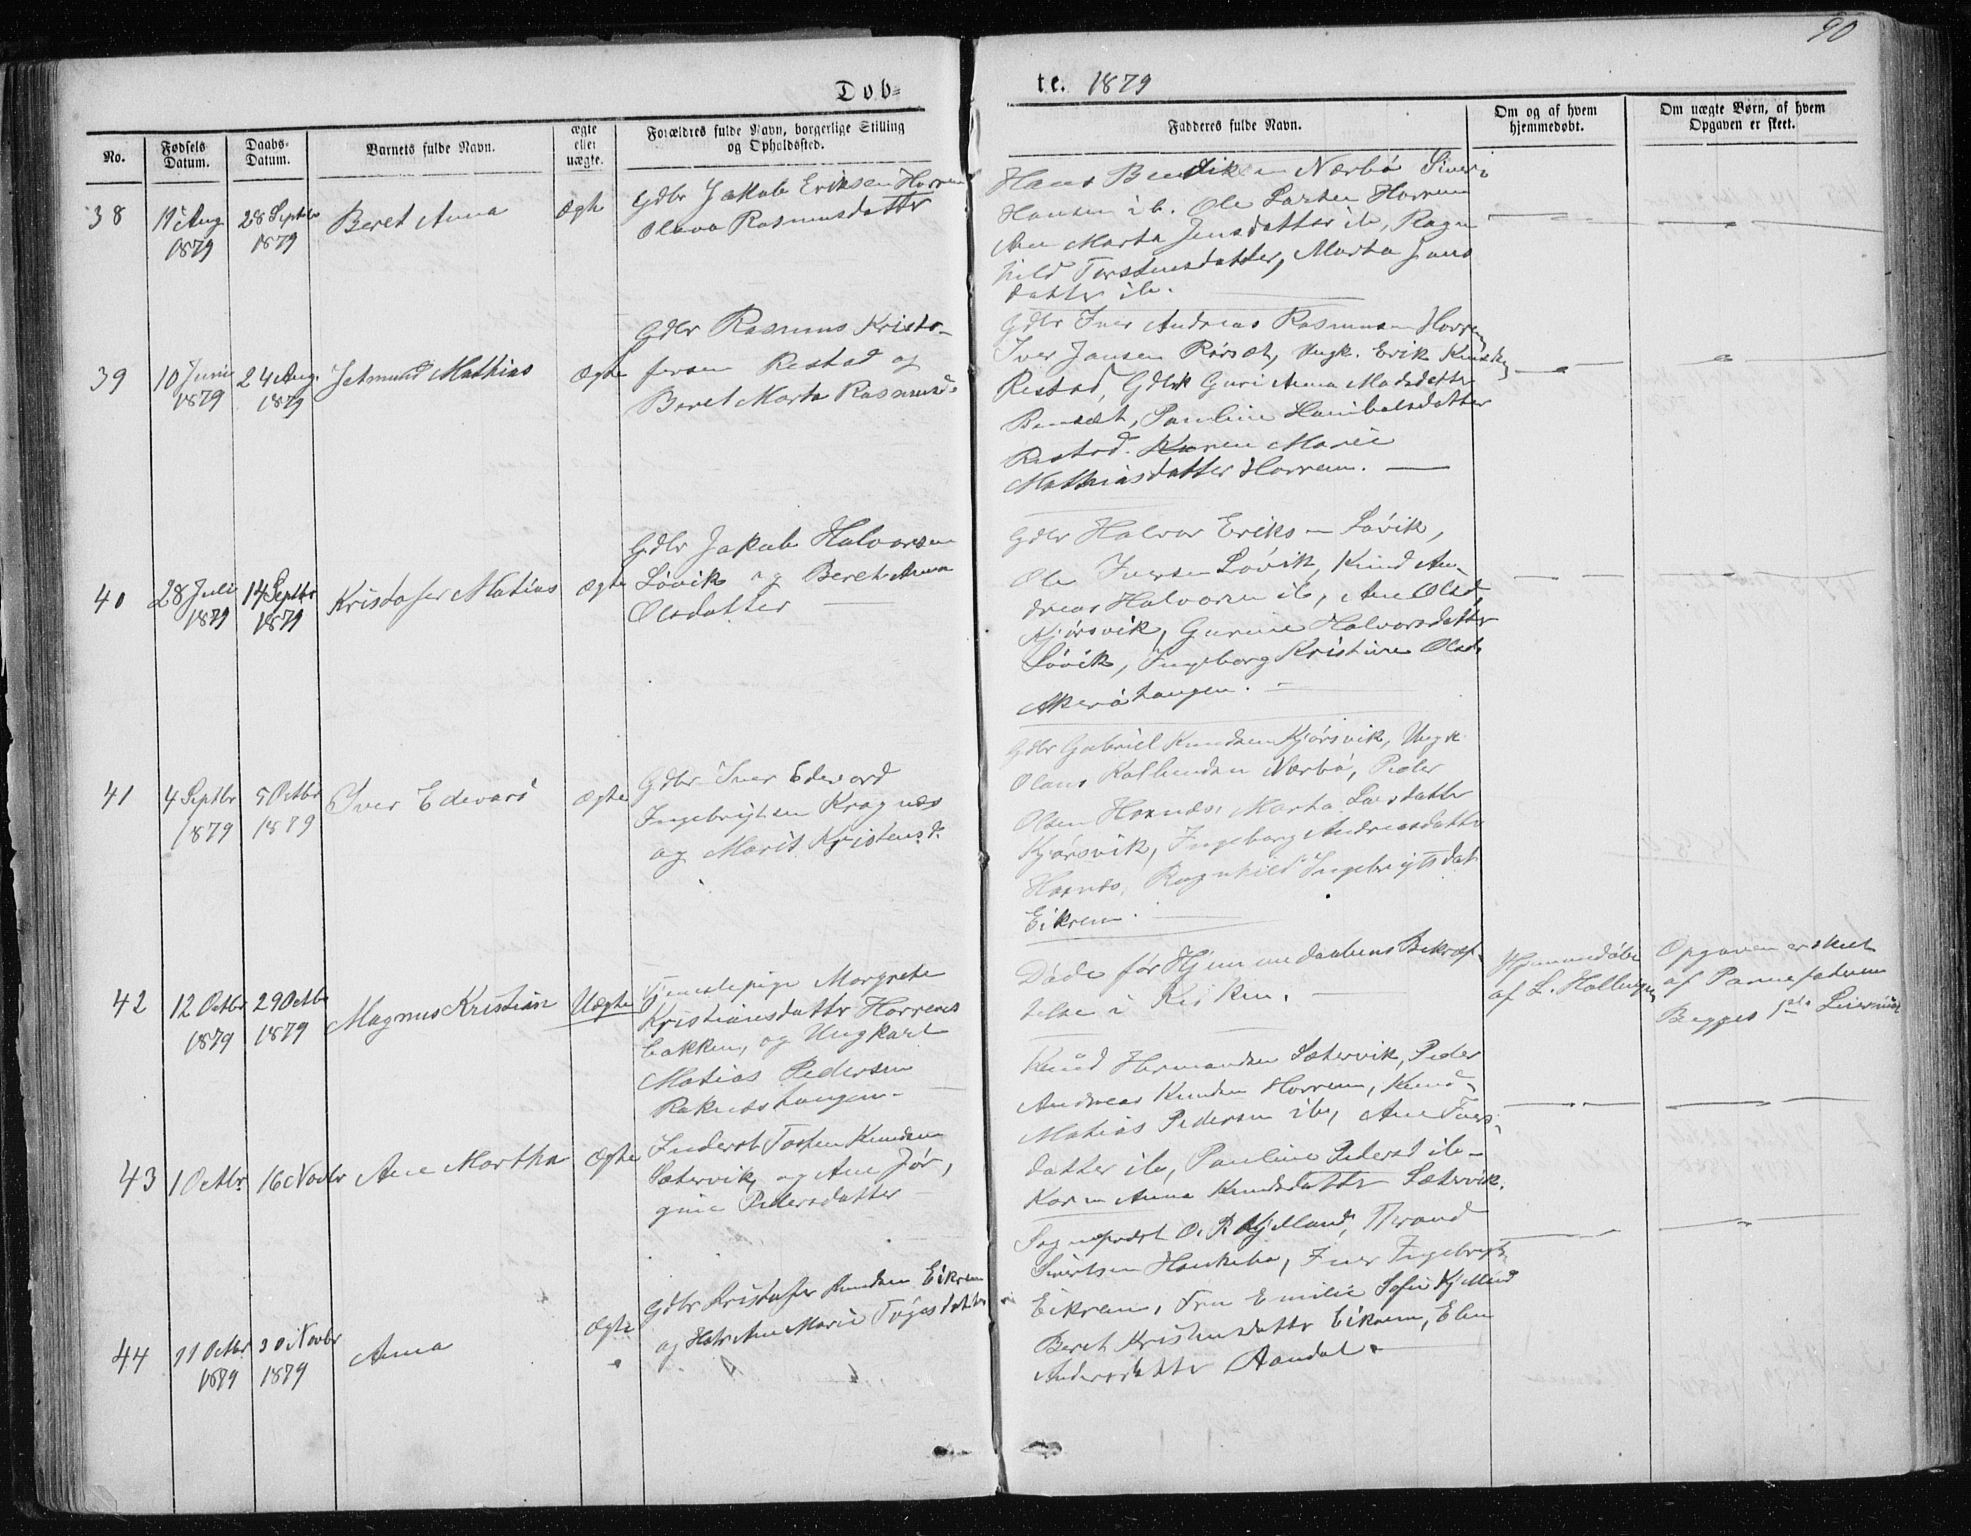 90
Døb=
te. 1879
No.
Fødsels Datum.
Daabs-Datum.
Barnets fulde Navn.
ægte eller uægte.
Forældres fulde Navn, borgerlige Stilling og Opholdssted.
Fadderes fulde Navn.
Om og af hvem hjemmedøbt.
Om uægte Børn, af hvem Opgaven er skeet.
38
Aug 1879
28 Septbr 1879
Beret Anna
Ægte
Gdbr Jakob Eriksen Horrem
Olava Rasmusdatter
Hans Nærbø Siver
Hansen ib. Ole Larsen Horrem
Ane Marta Jensdatter ib, Ragn
hild Torstensdatter, Marta Jens
datter ib.
39
10 Juni 1879
24 Aug. 1879
Jetmund Mathias
Ægte
Gdbr Rasmus Kristo-
fersen Restad og
Beret Marta Rasmusd.
Gdbr Iver Andreas Rasmusen Horrem
Iver Jansen Rørsæt, Ungk. Erik
Restad, Guri Anna Madsdatter
Pauline Hanibalsdatter
Restad. Karen Marie
Mathiasdatter Horrem.
40
28 Juli 1879
14 Septbr 1879
Kristofer Matias
Ægte
Gdbr Jakob Halvorsen
Løvik og Beret Anna
Olsdatter
Gdbr Halvor Eriksen Løvik,
Ole Iversen Løvik, Knud An-
dreas Halvorsen ib, Ane Olsd,
Kjørsvik, Gurine Halvorsdatter
Løvik, Ingeborg Kristine Olsd.
Akerøtangen.
41
4 Septbr 1879
5 Octbr 1879
Iver Edevard
Ægte
Gdbr Iver Edevard
Ingebrigtsen Kragnæs
og Marit Kristensd.
Gdbr Gabriel Knudsen Kjørsvik, Ungk.
Olaus Nærbø, Peder
Olsen Hoxnæs, Marta Larsdatter
Kjørsvik, Ingeborg Andreasdatter
Hoxnæs, Ragnhild Ingebrigtsdat
Eikrem.
42
12 Octbr 1879
29 Octbr 1879
Magnus Kristian
Uægte
Tjenestepige Margrete
Kristiansdatter Horrems
bakken, og Ungkarl
Matias Pedersen
Raknestangen.
Døde før Hjemmedaabens Bekræf-
telse i Kirken.
Hjemmedøbt
af L.
Opgaven er skeet
af Barnefaderen
Begges 1ste Leiermaal
43
1 Octbr.
16 Novbr
Ane Martha
Ægte
Inderst Knudsen
Sætervik, og Ane Jør,
gine Pedersdatter
Knud Hermandsen Sætervik, Peder
Andreas Knudsen Horrem, Knud
Matias Pedersen ib, Ane Ivers-
datter ib, Pauline Pedersd ib-
Karen Anna Knudsdatter Sætervik.
44
11 Octbr 1879
30 Novbr 1879
Anna
Ægte
Gdbr Kristofer Knudsen Eikrem
og Ane Marie
Sognepræst O. R. Kjelland,
Sivertsen Haukebø, Iver Ingebrigts.
Eikrem, Fru Emilie Sofie Kjelland
Beret Kristensdatter Eikrem, Elen
Andersdatter Aandal.